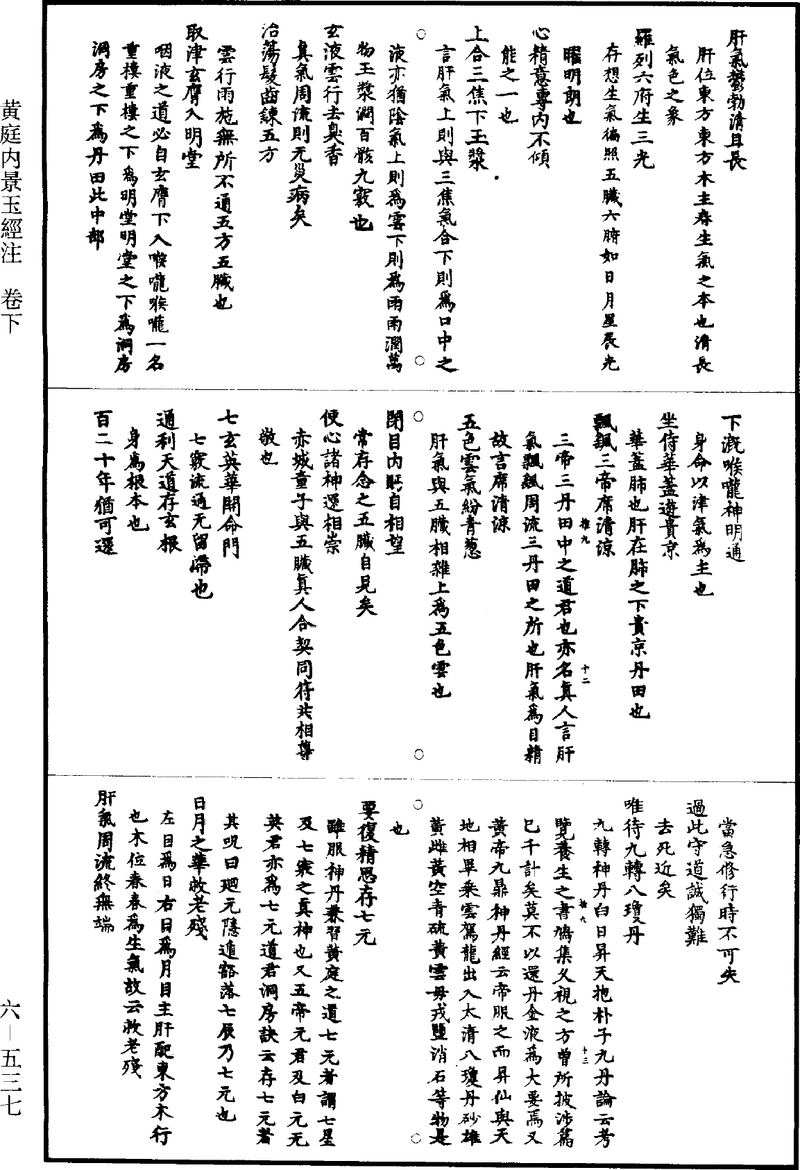 黃庭內景玉經注　卷下
六—五三七
肝氣鬱勃清且長
肝位東方東方木主春生氣之本也清長
氣色之象
羅列六府生三光
存想生氣徧照五臟六腑如日月星辰光
曜明朗也
心精意專內不傾
能之一也
上合三焦下玉漿
言肝氣上則與三焦氣合下則爲口中之
液亦猶陰氣上則爲雲下則爲雨雨潤萬
物玉漿潤百骸九竅也
玄液雲行去臭香
眞氣周流則无災病矣
治蕩髮齒鍊五方
雲行雨施無所不通五方五臟也
取津玄膺入明堂
咽液之道必自玄膺下入喉嚨喉嚨一名
重樓重樓之下爲明堂明堂之下爲洞房
洞房之下爲丹田此中部
下溉喉嚨神明通
身命以津氣爲主也
坐侍華蓋遊貴京
華蓋肺也肝在肺之下貴京丹田也
飄颻三帝席清涼
三帝三丹田中之道君也亦名眞人言肝
氣飄颻周流三丹田之所也肝氣爲目精
故言席清涼
五色雲氣紛青葱
肝氣與五臟相雜上爲五色雲也
閉目內眄自相望
常存念之五臟自見矣
使心諸神還相崇
赤城童子與五臟眞人合契同符共相尊
敬也
七玄英華開命門
七竅流通无留滯也
通利天道存玄根
身爲根本也
百二十年猶可還
當急修行時不可失
過此守道誠獨難
去死近矣
唯待九轉八瓊丹
九轉神丹白日昇天抱朴子九丹論云考
覽養生之書鳩集久視之方曾所披涉篇
已千計矣莫不以還丹金液爲大要焉又
黃帝九鼎神丹經云帝服之而昇仙與天
地相畢乘雲駕龍出入太清八瓊丹砂雄
黃雌黃空青硫黃雲母戎鹽消石等物是
也
要復精思存七元
雖服神丹兼習黃庭之道七元者謂七星
及七竅之眞神也又五帝元君及白元无
英君亦爲七元道君洞房訣云存七元者
其呪曰廻元隱遁豁落七辰乃七元也
日月之華救老殘
左目爲日右目爲月目主肝配東方木行
也木位春春爲生氣故云救老殘
肝氣周流終無端